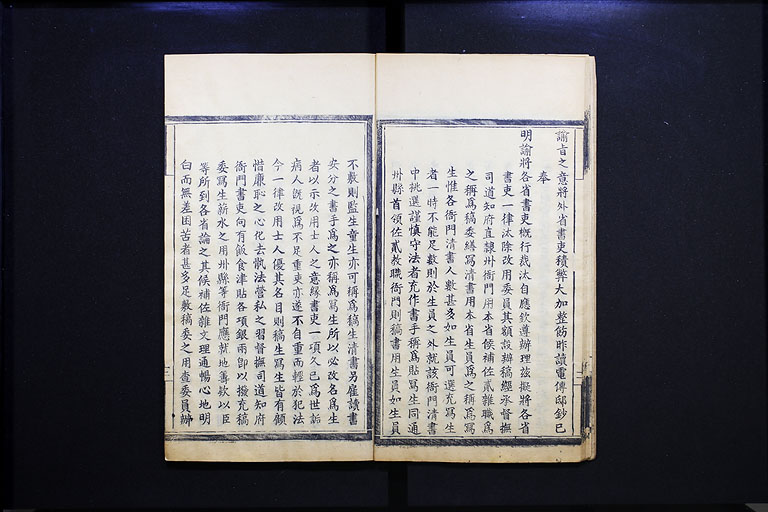 諭旨之意將外省書吏積弊大加整飭昨讀電傳邸鈔已
奉
明諭將各省書吏概行裁汰自應欽遵辦理茲擬將各省
書吏一律汰除改用委員其額設辦稿經承督撫
司道知府直隸州衙門用本省候補佐貳雜職為
之稱為稿委繕寫清書用本省生員為之稱為寫
生惟各衙門清書人數甚多如生員可選充寫生
者一時不能足數則於生員之外就該衙門清書
中挑選謹慎守法者充作書手稱為貼寫生同通
州縣首領佐貳教職衙門則稿書用生員如生員
不敷則監生童生亦可稱為稿生清書另雇讀書
安分之書手為之亦稱為寫生所以必改名為生
者以示改用士人之意緣書吏一項久已為世詬
病人既視為不足重吏亦遂不自重而輕於犯法
今一律改用士人優其名目則稿生寫生皆有顧
惜廉恥之心化去骫法營私之習督撫司道知府
衙門書吏向有飯食津貼各項銀兩卽以撥充稿
委寫生薪水之用州縣等衙門應就地籌欵以臣
等所到各省論之其候補佐雜文理通暢心地明
白而無差困苦者甚多足敷稿委之用查委員辦